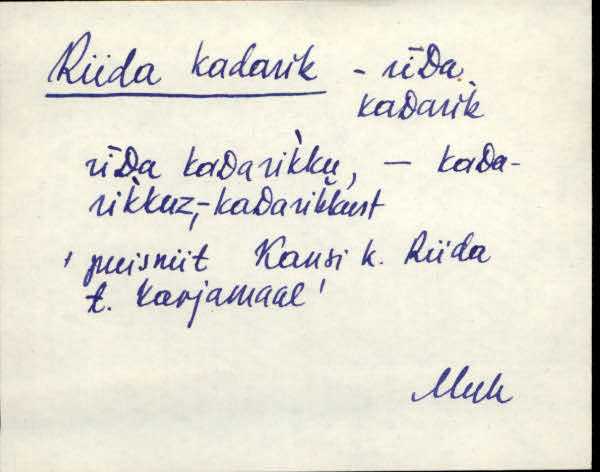 Riida kadarik - rīDa
kaDarik
rīDa kaDarìkku, – kaDa-
rìkkuz, -kaDarikkust
' puisniit Kansi k. Riida
t. Karjamaal '
Muh